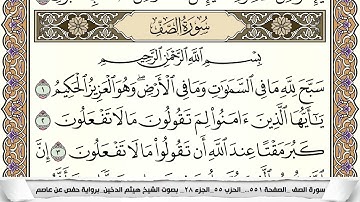 سُورَةُ الصَّفِّ
بِسْمِ اللَّهِ الرَّحْمَٰنِ الرَّحِيمِ
سَبَّحَ لِلَّهِ مَا فِي السَّمَاوَاتِ وَمَا فِي الْأَرْضِ ۖ وَهُوَ الْعَزِيزُ الْحَكِيمُ ١
يَا أَيُّهَا الَّذِينَ آمَنُوا لِمَ تَقُولُونَ مَا لَا تَفْعَلُونَ ٢
كَبُرَ مَقْتًا عِندَ اللَّهِ أَن تَقُولُوا مَا لَا تَفْعَلُونَ ٣ إِنَّ
سورة الصف _الصفحة ٥٥١_.. الحزب ٥٥_الجزء ٢٨_ بصوت الشيخ هيثم الدخين_ برواية حفص عن عاصم